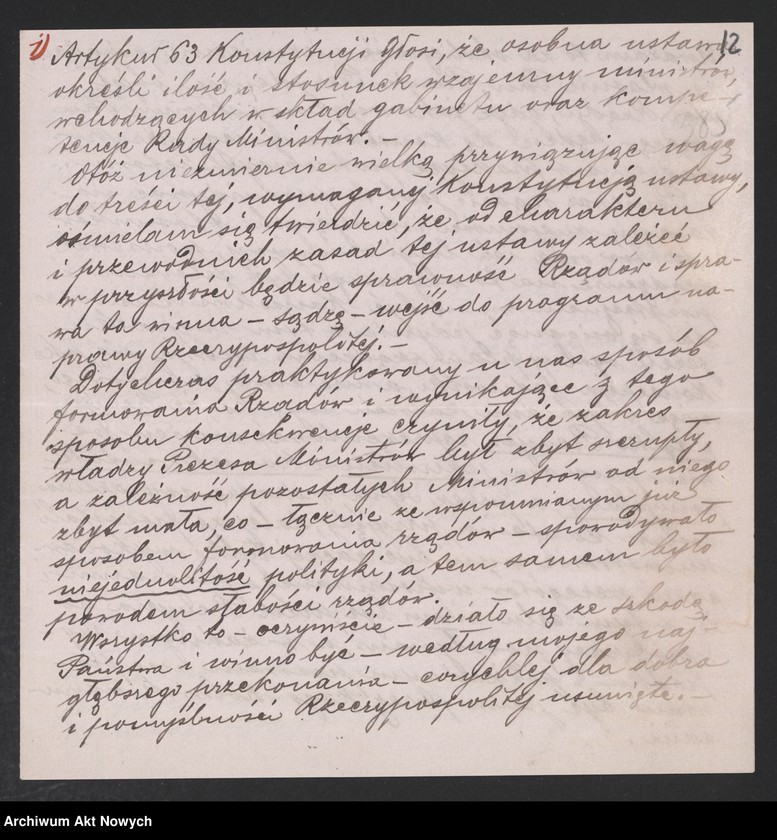 1) Artykuł 63 Konstytucji głosi, że osobna ustawa 12
określi ilość i stosunek wzajemny ministrów,
wchodzących w skład gabinetu oraz kompe-
tencje Rady Ministrów. –
Otóż niezmiernie wielką przywiązując wagę
do treści tej, wymaganej Konstytucją ustawy,
ośmielam się twierdzić, że od charakteru
i przewodnich zasad tej ustawy zależeć
w przyszłości będzie sprawność Rządów i spra-
wa ta winna – sądzę – wejść do programu na-
prawy Rzeczypospolitej. –
Dotychczas praktykowany u nas sposób
formowania Rządów i wynikające z tego
sposobu konsekwencje czyniły, że zakres
władzy Prezesa Ministrów był zbyt szczupły,
a zależność pozostałych Ministrów od niego
zbyt mała, co – łącznie ze wspomnianym już
sposobem formowania rządów – sporodywało
niejednolitość polityki, a tem samem było
powodem słabości rządów.
Wszystko to – oczywiście – działo się ze szkodą
Państwa i winno być – według mojego naj-
głębszego przekonania – corychlej dla dobra
i pomyślności Rzeczypospolitej usunięte. –
Archiwum Akt Nowych